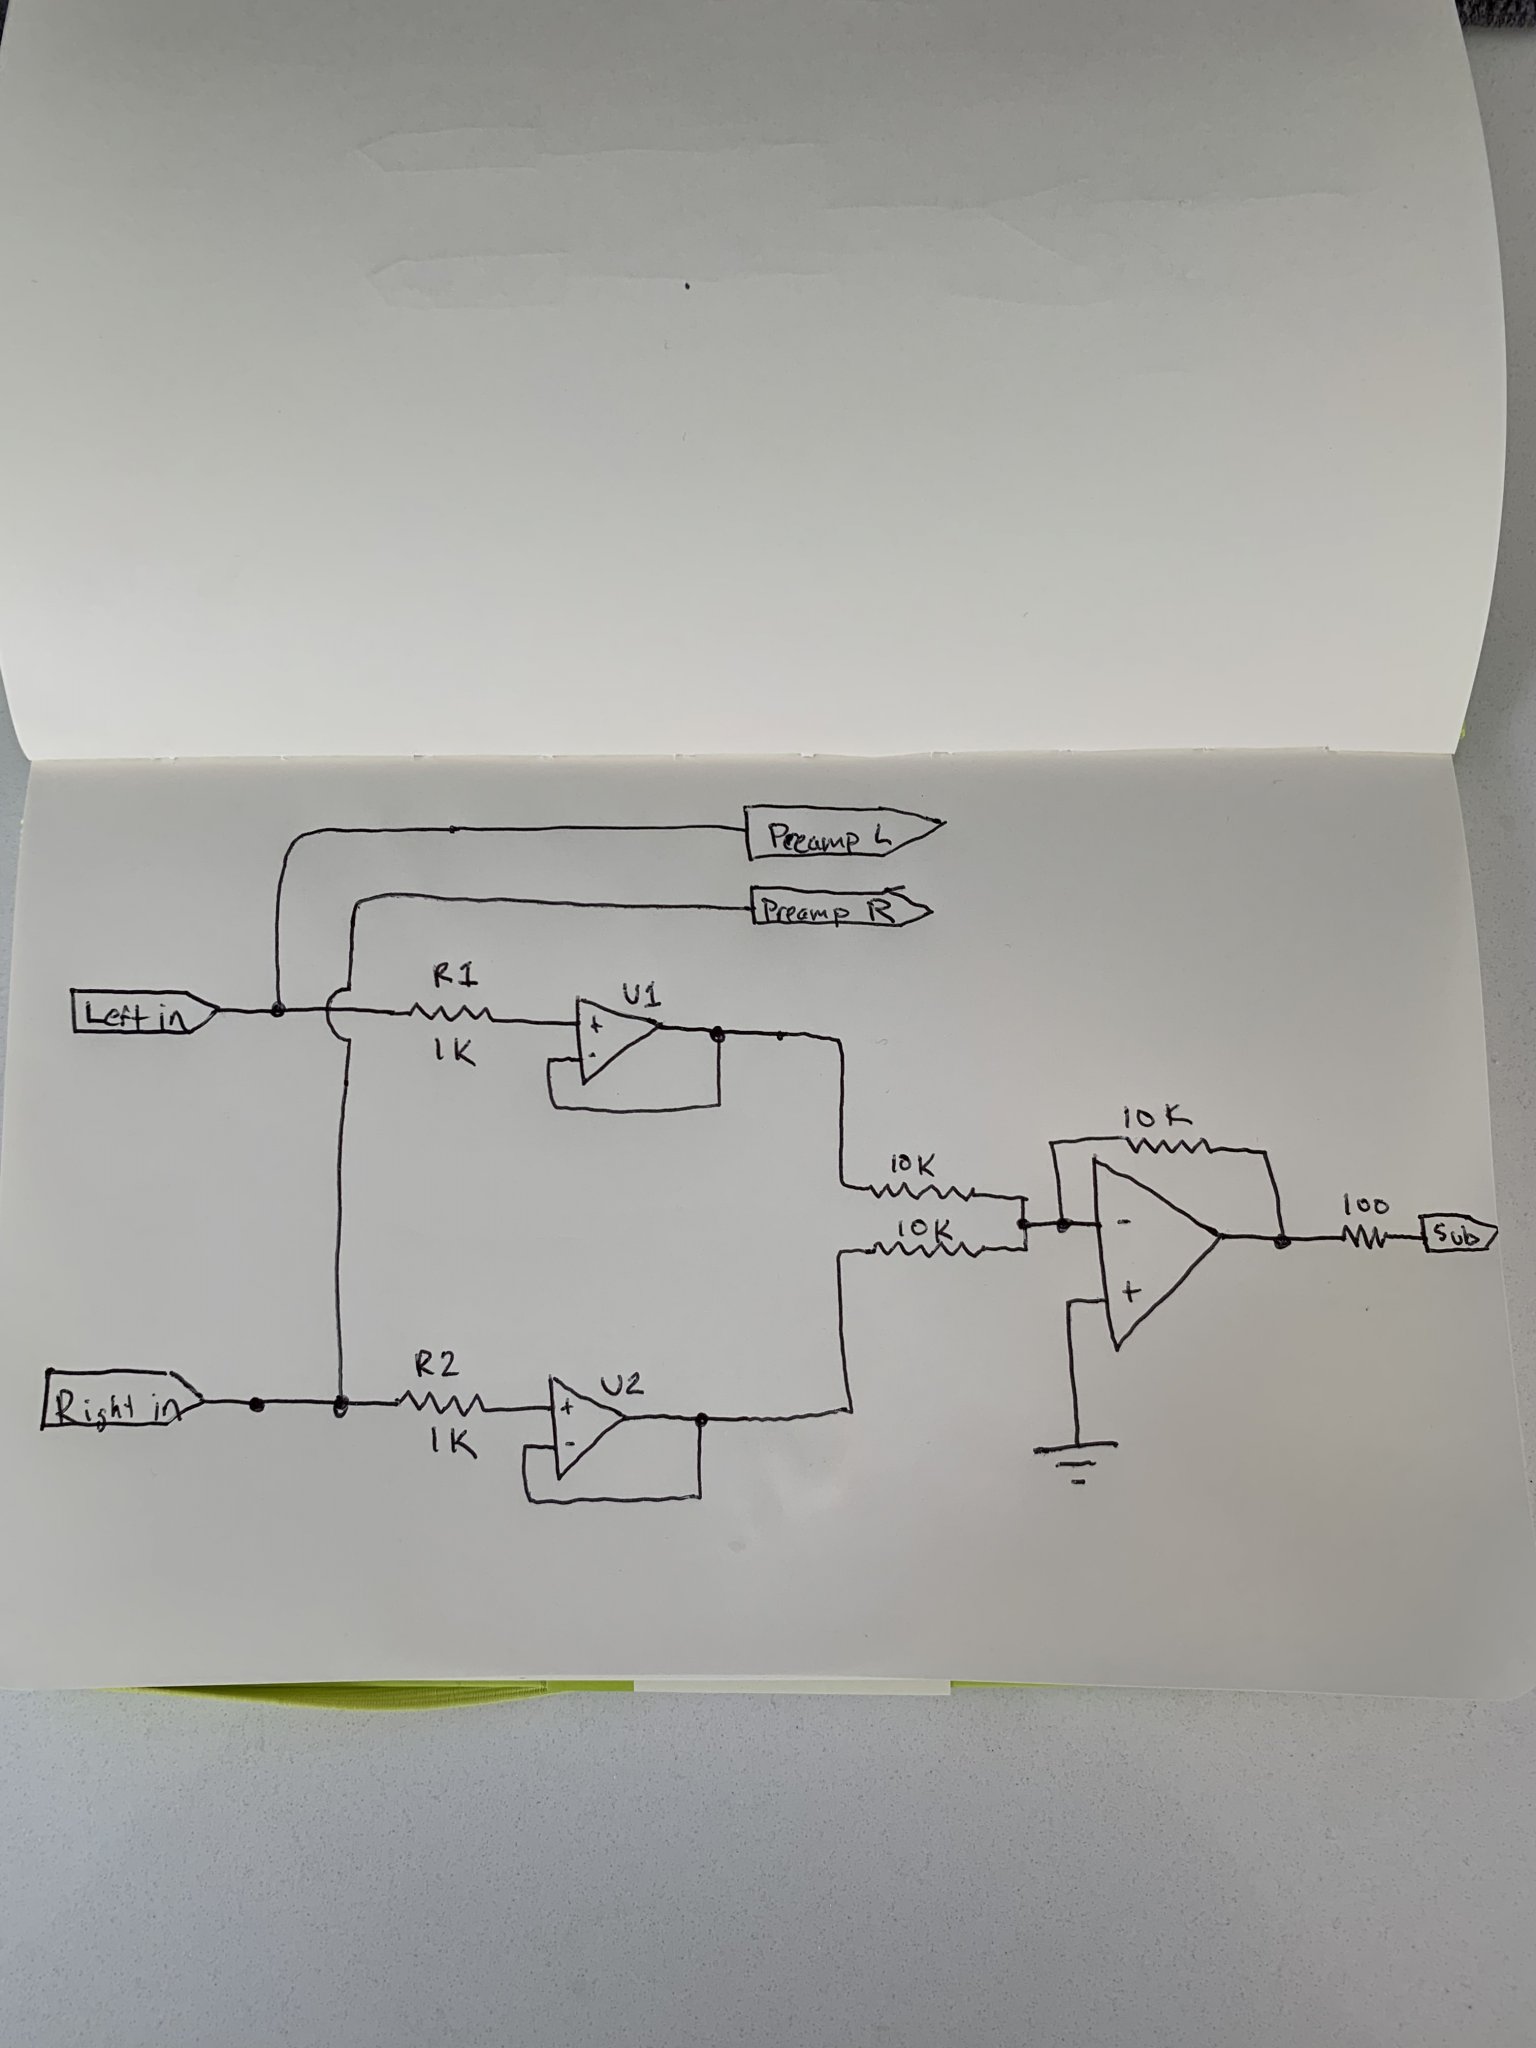 Preamp L
Preamp R
R1
U1
Left in
+
1K
-
10K
10K
100
-
10K
Sub
+
R2
U2
Right in
+
1K
-